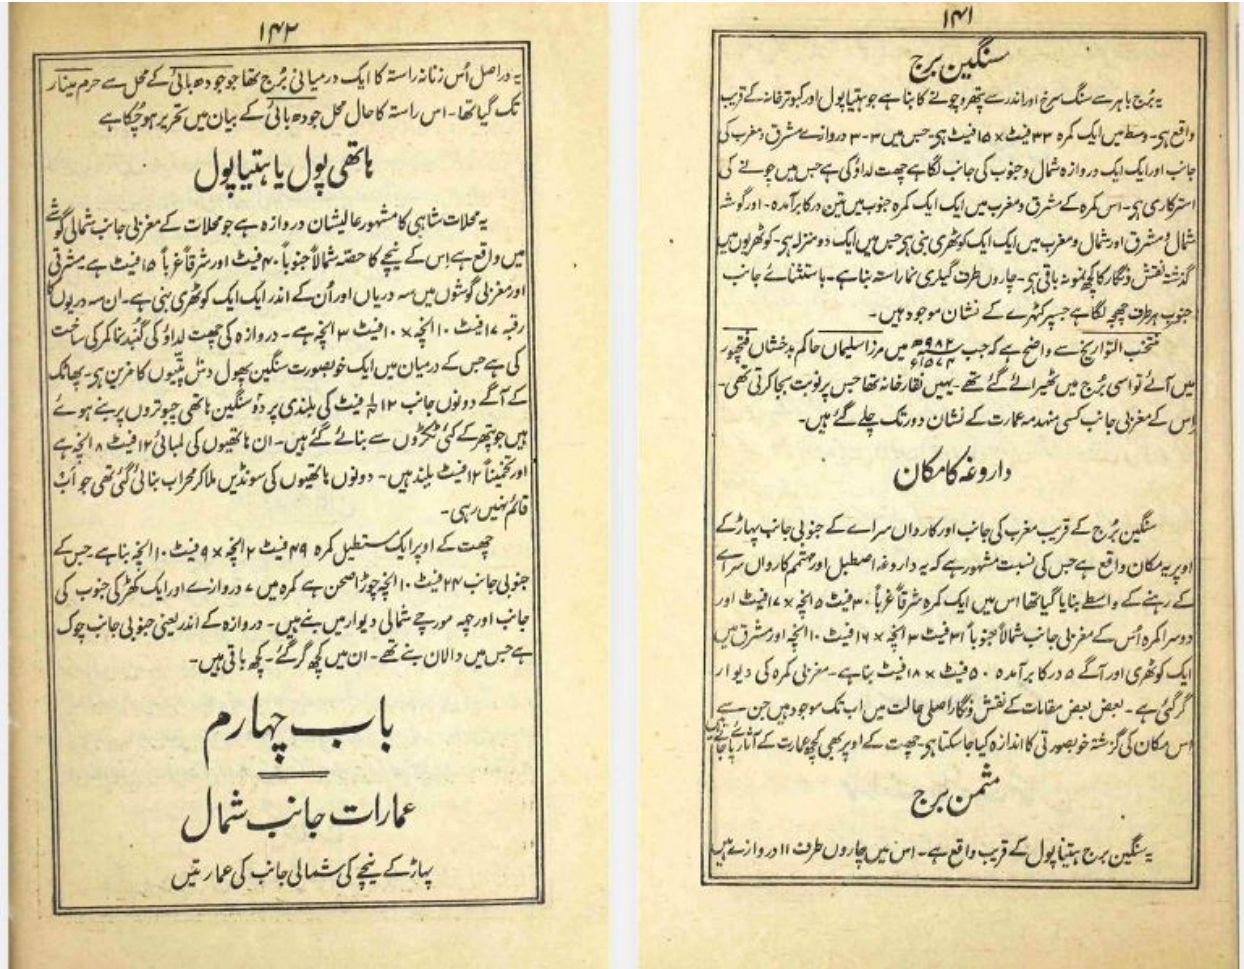 ۱۴۱
سنگین برج
یہ بُرج باہر سے سنگ سرخ اور اندر سے پتھر و چونے کا بنا ہے جو ہتیا پول اور کبوتر خانہ کے قریب
واقع ہی۔ وسط میں ایک کمرہ ۳۳ فیٹ × ۱۵ فیٹ ہی۔ جس میں ۳-۳ دروازے مشرق و مغرب کی
جانب اور ایک ایک دروازہ شمال و جنوب کی جانب لگا ہے چھت لداؤ کی ہے جس میں چونے کی
استرکاری ہی۔ اس کمرہ کے مشرق و مغرب میں ایک ایک کمرہ جنوب میں تین در کا برآمدہ۔ اور گوشہ
شمال و مشرق اور شمال و مغرب میں ایک ایک کوٹھری بنی ہی جس میں ایک دو منزلہ ہی۔ کوٹھریوں میں
گذشتہ نقش و نگار کا کچھ نمونہ باقی ہی۔ چاروں طرف گیلری نما راستہ بنا ہے۔ باستثنائے جانب
جنوب ہر طرف چھجہ لگا ہے جسپر کٹہرے کے نشان موجود ہیں۔
منتخب التواریخ سے واضح ہے کہ جب ۹۸۲ھ ۱۵۷۴ء میں مرزا سلیمان حاکم بدخشاں فتحپور
میں آئے تو اسی بُرج میں ٹھیرائے گئے تھے۔ یہیں نقار خانہ تھا جس پر نوبت بجا کرتی تھی۔
اِس کے مغربی جانب کسی منہدمہ عمارت کے نشان دور تک چلے گئے ہیں۔
داروغہ کا مکان
سنگین بُرج کے قریب مغرب کی جانب اور کارواں سراے کے جنوبی جانب پہاڑ کے
اوپر یہ مکان واقع ہے جس کی نسبت مشہور ہے کہ یہ داروغہ اصطبل اور مہتمم کارواں سراے
کے رہنے کے واسطے بنایا گیا تھا اس میں ایک کمرہ شرقاً غرباً ۳۰ فیٹ ۵ انچہ × ۱۷ فیٹ اور
دوسرا کمرہ اُس کے مغربی جانب شمالاً جنوباً ۳۱ فیٹ ۳ انچہ × ۱۶ فیٹ ۱۰ انچہ اور مشرق میں
ایک کوٹھری اور آگے ۵ در کا برآمدہ ۵۰ فیٹ × ۱۸ فیٹ بنا ہے۔ مغربی کمرہ کی دیوار
گر گئی ہے۔ بعض بعض مقامات کے نقش و نگار اصلی حالت میں اب تک موجود ہیں جن سے
اس مکان کی گزشتہ خوبصورتی کا اندازہ کیا جا سکتا ہی۔ چھت کے اوپر بھی کچھ عمارت کے آثار پائے جاتے ہیں
مثمن بُرج
یہ سنگین برج ہتیا پول کے قریب واقع ہے۔ اس میں چاروں طرف ۱۱ دروازے ہیں
۱۴۲
یہ دراصل اُس زنانہ راستہ کا ایک درمیانی بُرج تھا جو جودھ بائی کے محل سے حرم مینار
تک گیا تھا۔ اس راستہ کا حال محل جودھ بائی کے بیان میں تحریر ہو چُکا ہے
ہاتھی پول یا ہتیا پول
یہ محلات شاہی کا مشہور عالیشان دروازہ ہے جو محلات کے مغربی جانب شمالی گوشے
میں واقع ہے اِس کے نیچے کا حصّہ شمالاً جنوباً ۴۰ فیٹ اور شرقاً غرباً ۱۵ فیٹ ہے مشرقی
اور مغربی گوشوں میں سہ دریاں اور اُن کے اندر ایک ایک کوٹھری بنی ہے۔ ان سہ دریوں کا
رقبہ ۱۷ فیٹ ۱۰ انچہ × ۱۰ فیٹ ۳ انچہ ہے۔ دروازہ کی چھت لداؤ کی گنبد نما کمرکی ساخت
کی ہے جس کے درمیان میں ایک خوبصورت سنگین پھول دش پتّیوں کا مزین ہی۔ پھاٹک
کے آگے دونوں جانب ۱۲ ۱/۲ فیٹ کی بلندی پر دو سنگین ہاتھی چبوتروں پر بنے ہوئے
ہیں جو پتھر کے کئی ٹکڑوں سے بنائے گئے ہیں۔ ان ہاتھیوں کی لمبائی ۱۲ فیٹ ۸ انچہ ہے
اور تخمیناً ۱۲ فیٹ بلند ہیں۔ دونوں ہاتھیوں کی سونڈیں ملا کر محراب بنائی گئی تھی جو اَب
قائم نہیں رہی۔
چھت کے اوپر ایک مستطیل کمرہ ۴۹ فیٹ ۲ انچہ × ۹ فیٹ ۱۰ انچہ بنا ہے جس کے
جنوبی جانب ۲۴ فیٹ ۱۰ انچہ چوڑا صحن ہے کمرہ میں ۷ دروازے اور ایک کھڑکی جنوب کی
جانب اور چھہ مورچے شمالی دیوار میں بنے ہیں۔ دروازہ کے اندر یعنی جنوبی جانب چوک
ہے جس میں دالان بنے تھے۔ ان میں کچھ گر گئے۔ کچھ باقی ہیں۔
باب چہارم
عمارات جانب شمال
پہاڑ کے نیچے کی شمالی جانب کی عمارتیں